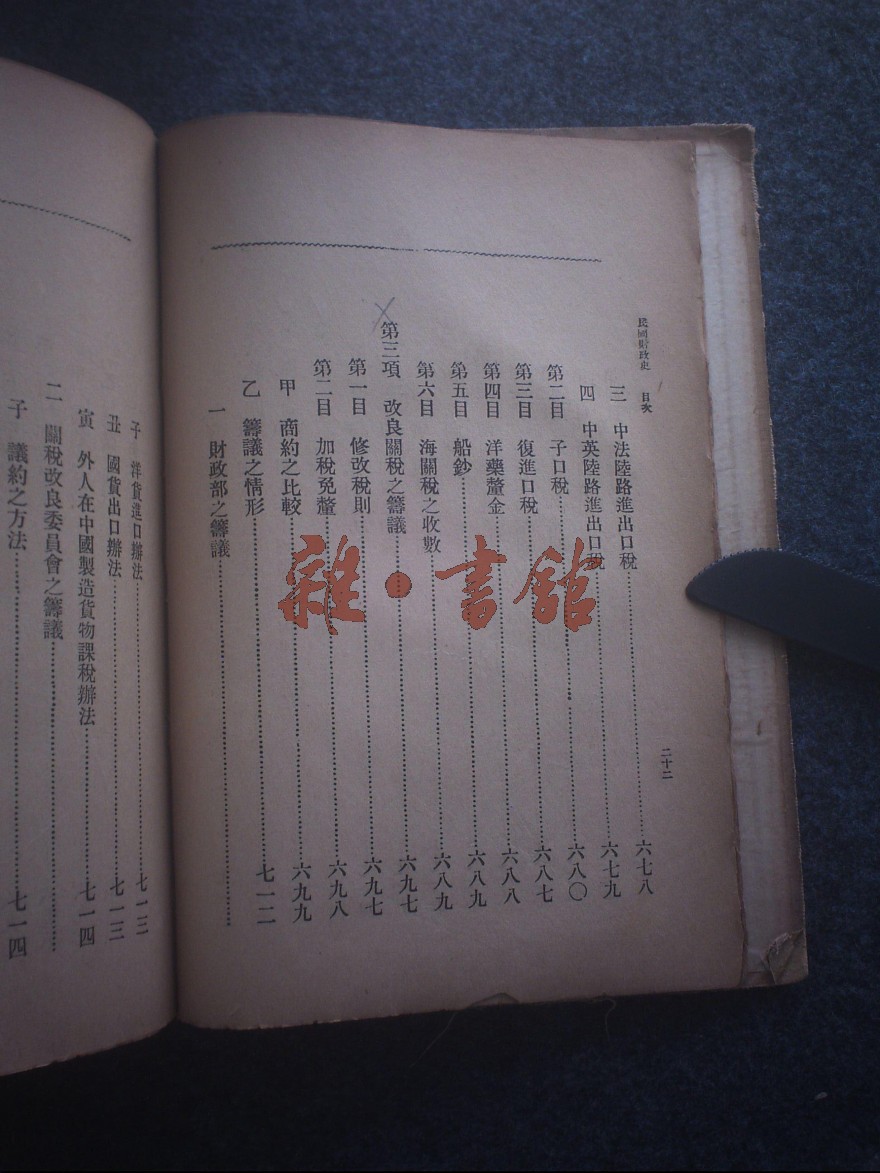 民國財政史 目次
二十二
三 中法陸路進出口稅……六七八
四 中英陸路進出口稅……六七九
第二目 子口稅……六八〇
第三目 復進口稅……六八七
第四目 洋藥釐金……六八八
第五目 船鈔……六八九
第六目 海關稅之收數……六八九
第三項 改良關稅之籌議……六九七
第一目 修改稅則……六九七
第二目 加稅免釐……六九八
甲 商約之比較……六九九
乙 籌議之情形……七一二
一 財政部之籌議……
子 洋貨進口辦法……七一三
丑 國貨出口辦法……七一三
寅 外人在中國製造貨物課稅辦法……七一四
二 關稅改良委員會之籌議……
子 議約之方法……七一四
雜·書館